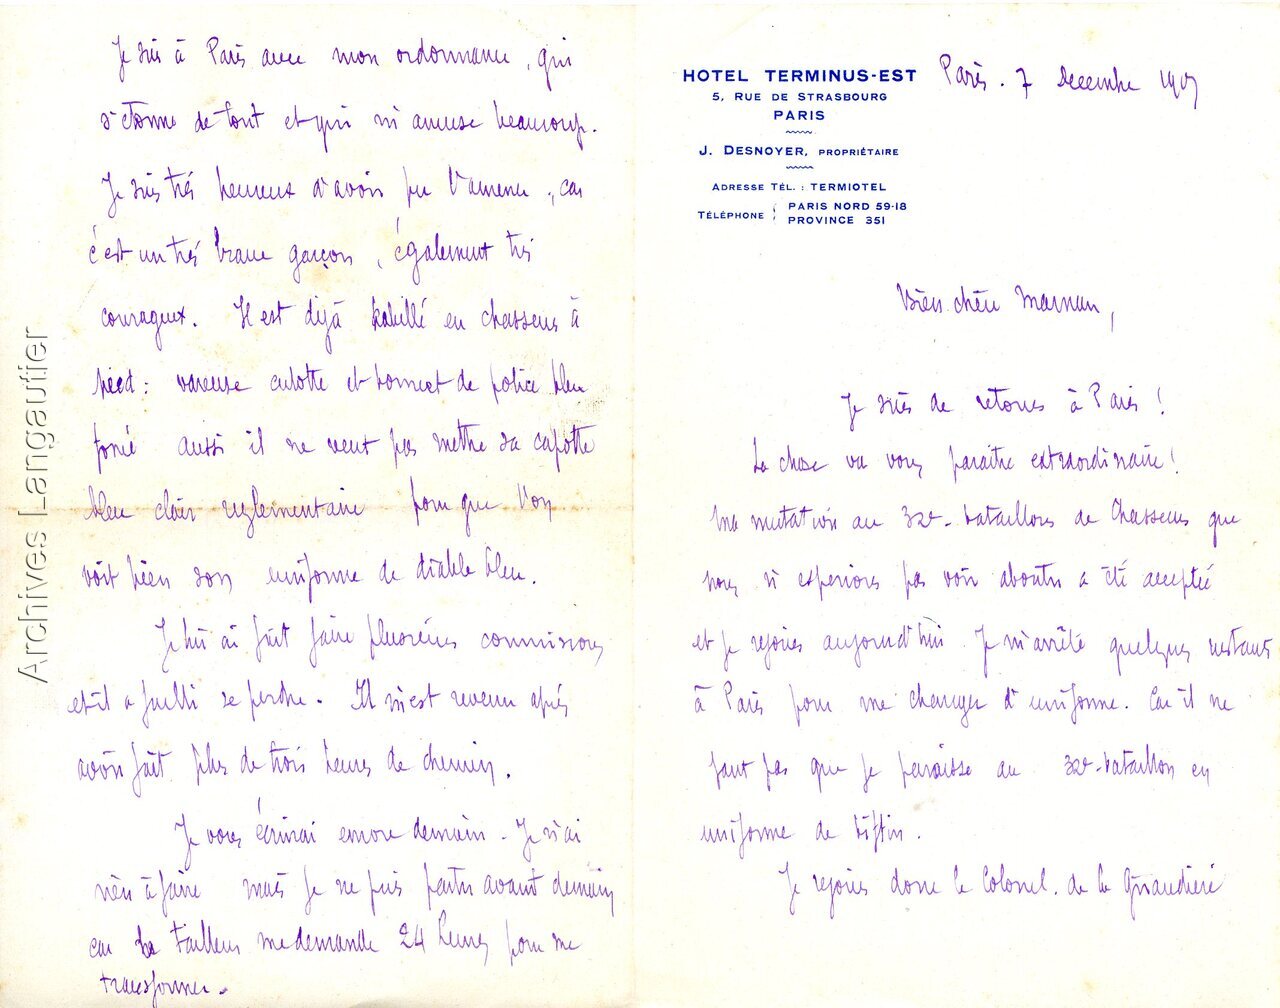 HOTEL TERMINUS-EST
5, RUE DE STRASBOURG
PARIS
J. DESNOYER, PROPRIÉTAIRE
ADRESSE TÉL. : TERMIOTEL
TÉLÉPHONE : PARIS NORD 59-18
PROVINCE 351
Paris. 7 Decembre
Bien chère Maman,
Je suis de retour à Paris !
La chose va vous paraitre extraordinaire !
Ma mutation au 32e bataillon de Chasseurs que
nous n'esperions pas voir aboutir a été acceptée
et je rejoins aujourd'hui. Je m'arrête quelques instants
à Paris pour me changer d'uniforme. Car il ne
faut pas que je paraisse au 32e bataillon en
uniforme de biffin.
Je rejoins donc le Colonel. de la Giraudière
Je suis à Paris avec mon ordonnance, qui
s'étonne de tout et qui m'amuse beaucoup.
Je suis très heureux d'avoir pu l'amener, car
c'est un très brave garçon, également très
courageux. Il est déjà habillé en chasseur à
pied : vareuse culotte et bonnet de police bleu
foncé aussi il ne veut pas mettre sa capotte
bleu clair reglementaire pour que l'on
voit bien son uniforme de diable bleu.
Je lui ai fait faire plusieurs commissions
et il a failli se perdre. Il m'est revenu après
avoir fait plus de trois heures de chemin.
Je vous écrirai encore demain. Je n'ai
rien à faire mais je ne puis partir avant demain
car le tailleur me demande 24 heures pour me
transformer.
Archives Langautier